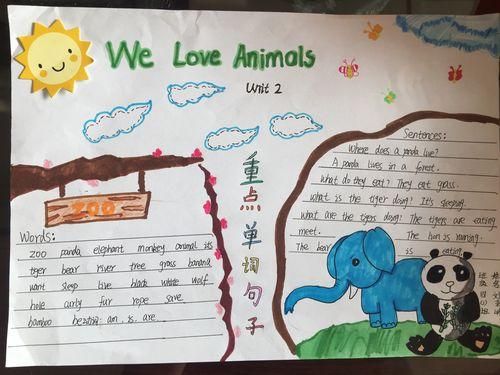 We Love Animals
Unit 2
重点单词句子
ZOO
Words:
zoo panda elephant monkey animal its
tiger bear river tree grass banana
want sleep live black white wolf
hole curly fur rope save
bamboo am. is. are
Sentences:
Where does a panda live?
A panda lives in a forest.
what do they eat? They eat grass.
what is the tiger doing? It's sleeping.
what are the tigers doing? The tigers are eating
meet. The lion is running.
The bear is eating